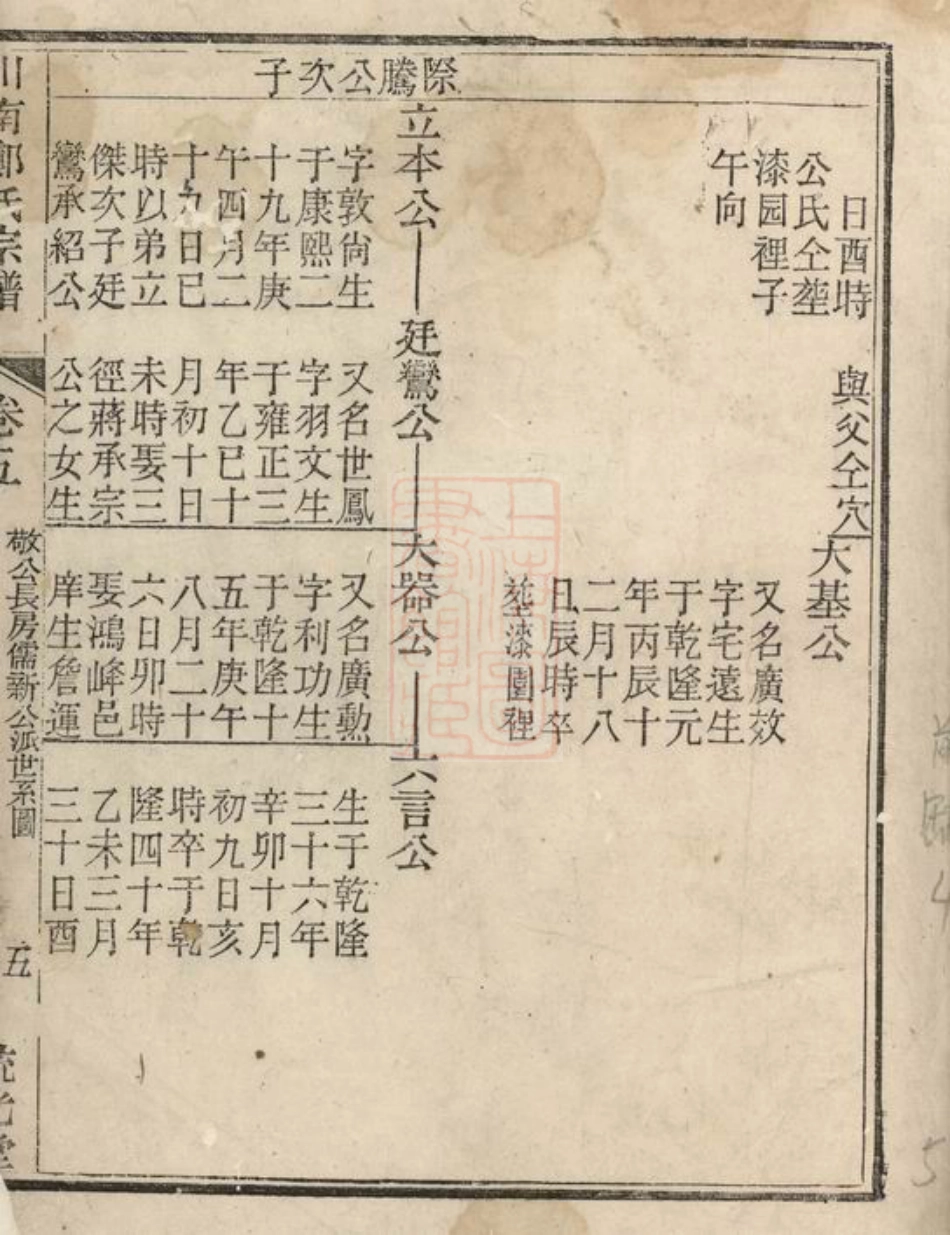 日酉時
公氏仝塟
漆园裡子
午向
與父仝穴
大基公
又名廣效
字宅遠生
于乾隆元
年丙辰十
二月十八
日辰時卒
塟漆園裡
際騰公次子
立本公
字敦尙生
于康熙二
十九年庚
午四月二
十九日巳
時以弟立
傑次子廷
鸞承紹公
廷鸞公
又名世鳳
字羽文生
于雍正三
年乙巳十
月初十日
未時娶三
徑蔣承宗
公之女生
大器公
又名廣勲
字利功生
于乾隆十
五年庚午
八月二十
六日卯時
娶鴻峰邑
庠生詹運
六言公
生于乾隆
三十六年
辛卯十月
初九日亥
時卒于乾
隆四十年
乙未三月
三十日酉
川南鄭氏宗譜
卷五
敬公長房儒新公派世系圖
五